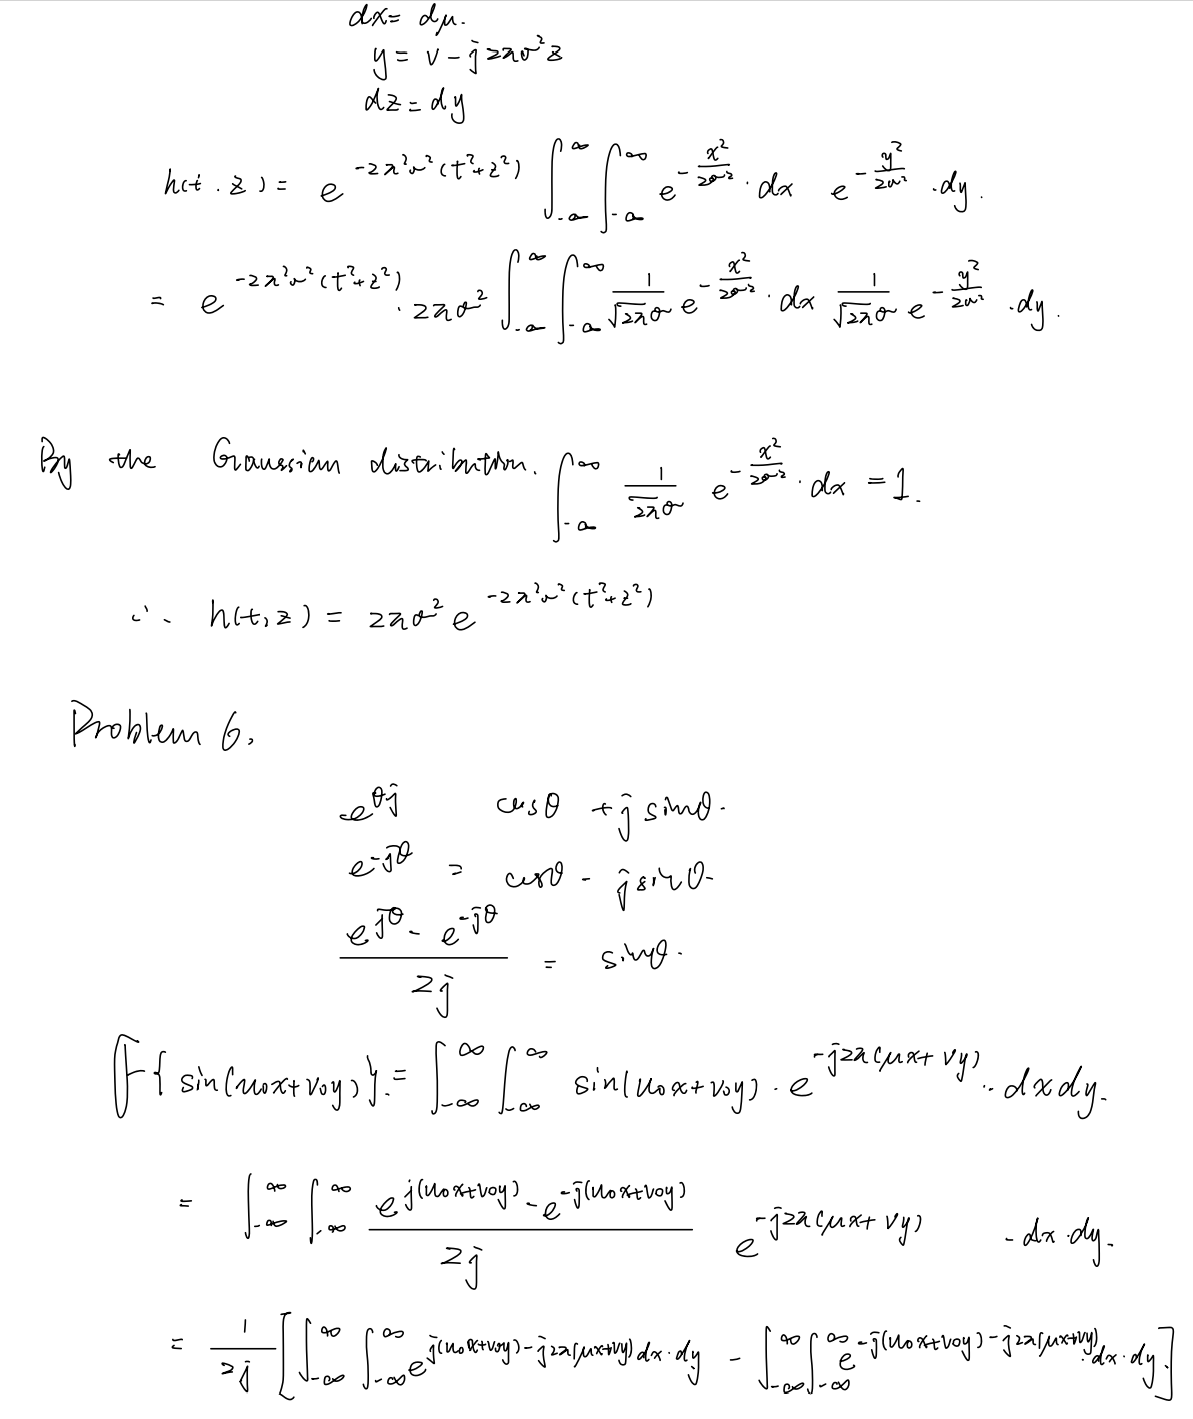 dx = dμ.
y = v - j2πσ²z
dz = dy
h(t, z) = e^{-2π²σ²(t²+z²)} ∫_{-∞}^{∞} ∫_{-∞}^{∞} e^{-x²/2σ²} · dx e^{-y²/2σ²} · dy.
= e^{-2π²σ²(t²+z²)} · 2πσ² ∫_{-∞}^{∞} ∫_{-∞}^{∞} 1/(√2π σ) e^{-x²/2σ²} · dx 1/(√2π σ) e^{-y²/2σ²} · dy.
By the Gaussian distribution. ∫_{-∞}^{∞} 1/(√2π σ) e^{-x²/2σ²} · dx = 1.
∴ h(t, z) = 2πσ² e^{-2π²σ²(t²+z²)}
Problem 6.
e^{θj} cosθ + j sinθ.
e^{-jθ} = cosθ - j sinθ.
(e^{jθ} - e^{-jθ})/2j = sinθ.
F{sin(u₀x+v₀y)} = ∫_{-∞}^{∞} ∫_{-∞}^{∞} sin(u₀x+v₀y) · e^{-j2π(μx+vy)} · dxdy.
= ∫_{-∞}^{∞} ∫_{-∞}^{∞} (e^{j(u₀x+v₀y)} - e^{-j(u₀x+v₀y)})/2j e^{-j2π(μx+vy)} · dx·dy.
= 1/2j [∫_{-∞}^{∞} ∫_{-∞}^{∞} e^{j(u₀x+v₀y)-j2π(μx+vy)} dx·dy - ∫_{-∞}^{∞} ∫_{-∞}^{∞} e^{-j(u₀x+v₀y)-j2π(μx+vy)} · dx·dy.]